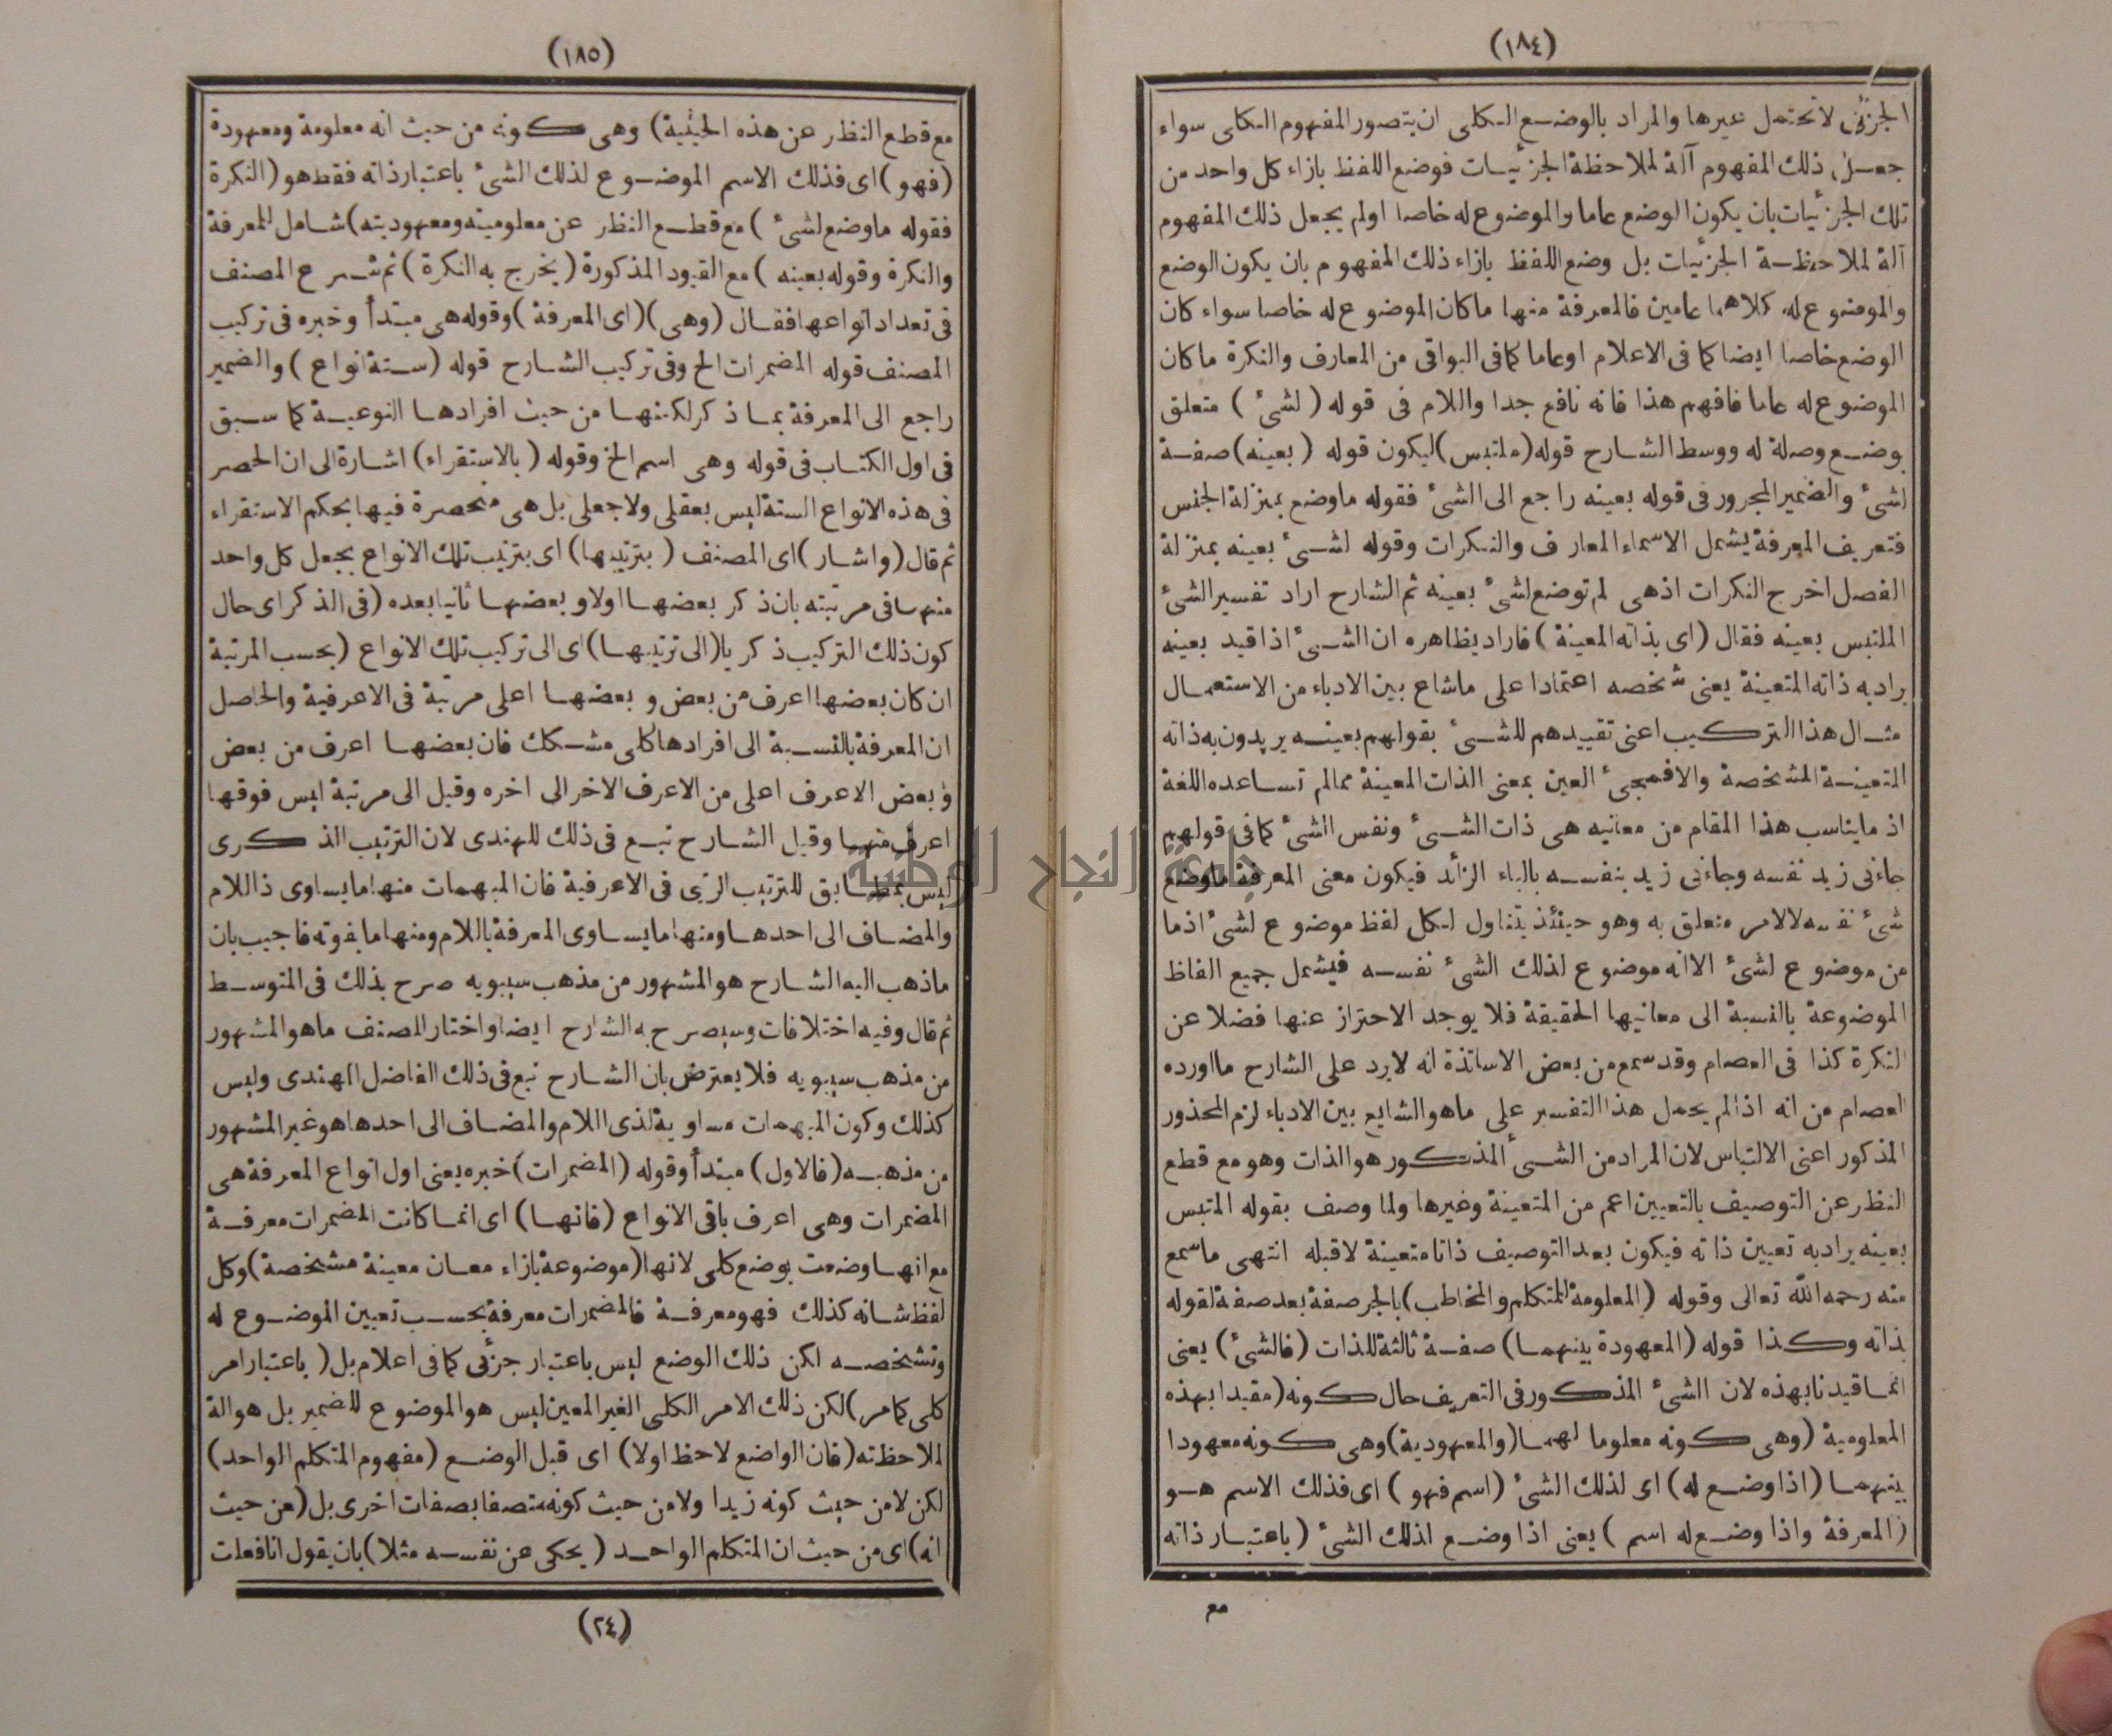 (١٨٤)
الجزئى لا تحتمل غيرها والمراد بالوضع الكلى ان يتصور المفهوم الكلى سواء
جعل ذلك المفهوم آلة لملاحظة الجزئيات فوضع اللفظ بازاء كل واحد من
تلك الجزئيات بان يكون الوضع عاما والموضوع له خاصا اولم يجعل ذلك المفهوم
آلة لملاحظة الجزئيات بل وضع اللفظ بازاء ذلك المفهوم بان يكون الوضع
والموضوع له كلاهما عامين فالمعرفة منها ما كان الموضوع له خاصا سواء كان
الوضع خاصا ايضا كما فى الاعلام او عاما كما فى البواقى من المعارف والنكرة ما كان
الموضوع له عاما فافهم هذا فانه نافع جدا واللام فى قوله ( لشئ ) متعلق
بوضع وصلة له ووسط الشارح قوله (ملتبس) ليكون قوله ( بعينه) صفة
لشئ والضمير المجرور فى قوله بعينه راجع الى الشئ فقوله ما وضع بمنزلة الجنس
فتعريف المعرفة يشمل الاسماء المعارف والنكرات وقوله لشئ بعينه بمنزلة
الفصل اخرج النكرات اذ هى لم توضع لشئ بعينه ثم الشارح اراد تفسير الشئ
الملتبس بعينه فقال (اى بذاته المعينة ) فاراد بظاهره ان الشئ اذا قيد بعينه
يراد به ذاته المتعينة يعنى شخصه اعتمادا على ما شاع بين الادباء من الاستعمال
مثال هذا التركيب اعنى تقييدهم للشئ بقولهم بعينه يريدون به ذاته
المتعينة المشخصة والا فمجئ العين بمعنى الذات المعينة مما لم تساعده اللغة
اذ ما يناسب هذا المقام من معانيه هى ذات الشئ ونفس الشئ كما فى قولهم
جاءنى زيد نفسه وجاءنى زيد بنفسه بالباء الزائد فيكون معنى المعرفة ما وضع
شئ نفسه لا لامر متعلق به وهو حينئذ يتناول لكل لفظ موضوع لشئ اذ ما
من موضوع لشئ الا انه موضوع لذلك الشئ نفسه فيشمل جميع الفاظ
الموضوعة بالنسبة الى معانيها الحقيقة فلا يوجد الاحتراز عنها فضلا عن
النكرة كذا فى العصام وقد سمع من بعض الاساتذة انه لا يرد على الشارح ما اورده
العصام من انه اذا لم يحمل هذا التفسير على ما هو الشايع بين الادباء لزم المحذور
المذكور اعنى الالتباس لان المراد من الشئ المذكور هو الذات وهو مع قطع
النظر عن التوصيف بالتعيين اعم من المتعينة وغيرها ولما وصف بقوله المتبس
بعينه يراد به تعيين ذاته فيكون بعد التوصيف ذاتا متعينة لا قبله انتهى ما سمع
منه رحمه الله تعالى وقوله (المعلومة للمتكلم والمخاطب) بالجر صفة بعد صفة لقوله
بذاته وكذا قوله (المعهودة بينهما) صفة ثالثة للذات (فالشئ ) يعنى
انما قيدنا بهذه لان الشئ المذكور فى التعريف حال كونه (مقيدا بهذه
المعلومية (وهى كونه معلوما لهما (والمعهودية) وهى كونه معهودا
بينهما (اذا وضع له) اى لذلك الشئ (اسم فهو ) اى فذلك الاسم هو
(المعرفة واذا وضع له اسم ) يعنى اذا وضع لذلك الشئ ( باعتبار ذاته
مع
(١٨٥)
مع قطع النظر عن هذه الحيثية) وهى كونه من حيث انه معلومة ومعهودة
(فهو) اى فذلك الاسم الموضوع لذلك الشئ باعتبار ذاته فقط هو (النكرة
فقوله ما وضع لشئ ) مع قطع النظر عن معلوميته ومعهوديته) شامل للمعرفة
والنكرة وقوله بعينه ) مع القيود المذكورة (يخرج به النكرة ) ثم شرع المصنف
فى تعداد انواعها فقال (وهى) (اى المعرفة ) وقوله هى مبتدأ وخبره فى تركيب
المصنف قوله المضمرات الخ وفى تركيب الشارح قوله (ستة انواع ) والضمير
راجع الى المعرفة بما ذكر لكنها من حيث افرادها النوعية كما سبق
فى اول الكتاب فى قوله وهى اسم الخ وقوله ( بالاستقراء ) اشارة الى ان الحصر
فى هذه الانواع الستة ليس بعقلى ولا جعلى بل هى منحصرة فيها بحكم الاستقراء
ثم قال (واشار ) اى المصنف ( بترتيبها) اى بترتيب تلك الانواع بجعل كل واحد
منها فى مرتبته بان ذكر بعضها اولا وبعضها ثانيا بعده (فى الذكر اى حال
كون ذلك التركيب ذكريا (الى ترتيبها) اى الى تركيب تلك الانواع (بحسب المرتبة
ان كان بعضها اعرف من بعض وبعضها اعلى مرتبة فى الاعرفية والحاصل
ان المعرفة بالنسبة الى افرادها كلى مشكك فان بعضها اعرف من بعض
وبعض الاعرف اعلى من الاعرف الاخر الى اخره وقيل الى مرتبة ليس فوقها
اعرف منها وقيل الشارح تبع فى ذلك للهندى لان الترتيب الذكرى
ليس بمطابق للترتيب الرتبى فى الاعرفية فان المبهمات منها ما يساوى ذا اللام
والمضاف الى احدها ومنها ما يساوى المعرفة باللام ومنها ما يفوته فاجيب بان
ما ذهب اليه الشارح هو المشهور من مذهب سيبويه صرح بذلك فى المتوسط
ثم قال وفيه اختلافات وسيصرح به الشارح ايضا واختار المصنف ما هو المشهور
من مذهب سيبويه فلا يعترض بان الشارح تبع فى ذلك الفاضل الهندى وليس
كذلك وكون المبهمات مساوية لذى اللام والمضاف الى احدها هو غير المشهور
من مذهبه (فالاول) مبتدأ وقوله (المضمرات) خبره يعنى اول انواع المعرفة هى
المضمرات وهى اعرف باقى الانواع (فانها) اى انما كانت المضمرات معرفة
مع انها وضعت بوضع كلى لانها (موضوعة بازاء معان معينة مشخصة) وكل
لفظ شانه كذلك فهو معرفة فالمضمرات معرفة بحسب تعيين الموضوع له
وتشخصه لكن ذلك الوضع ليس باعتبار جزئى كما فى اعلام بل (باعتبار امر
كلى كما مر) لكن ذلك الامر الكلى الغير المعين ليس هو الموضوع للضمير بل هو الة
لملاحظته (فان الواضع لاحظ اولا) اى قبل الوضع (مفهوم المتكلم الواحد)
لكن لا من حيث كونه زيدا ولا من حيث كونه متصفا بصفات اخرى بل (من حيث
انه) اى من حيث ان المتكلم الواحد ( يحكى عن نفسه مثلا) بان يقول انا فعلت
(٢٤)
جامعة النجاح الوطنية